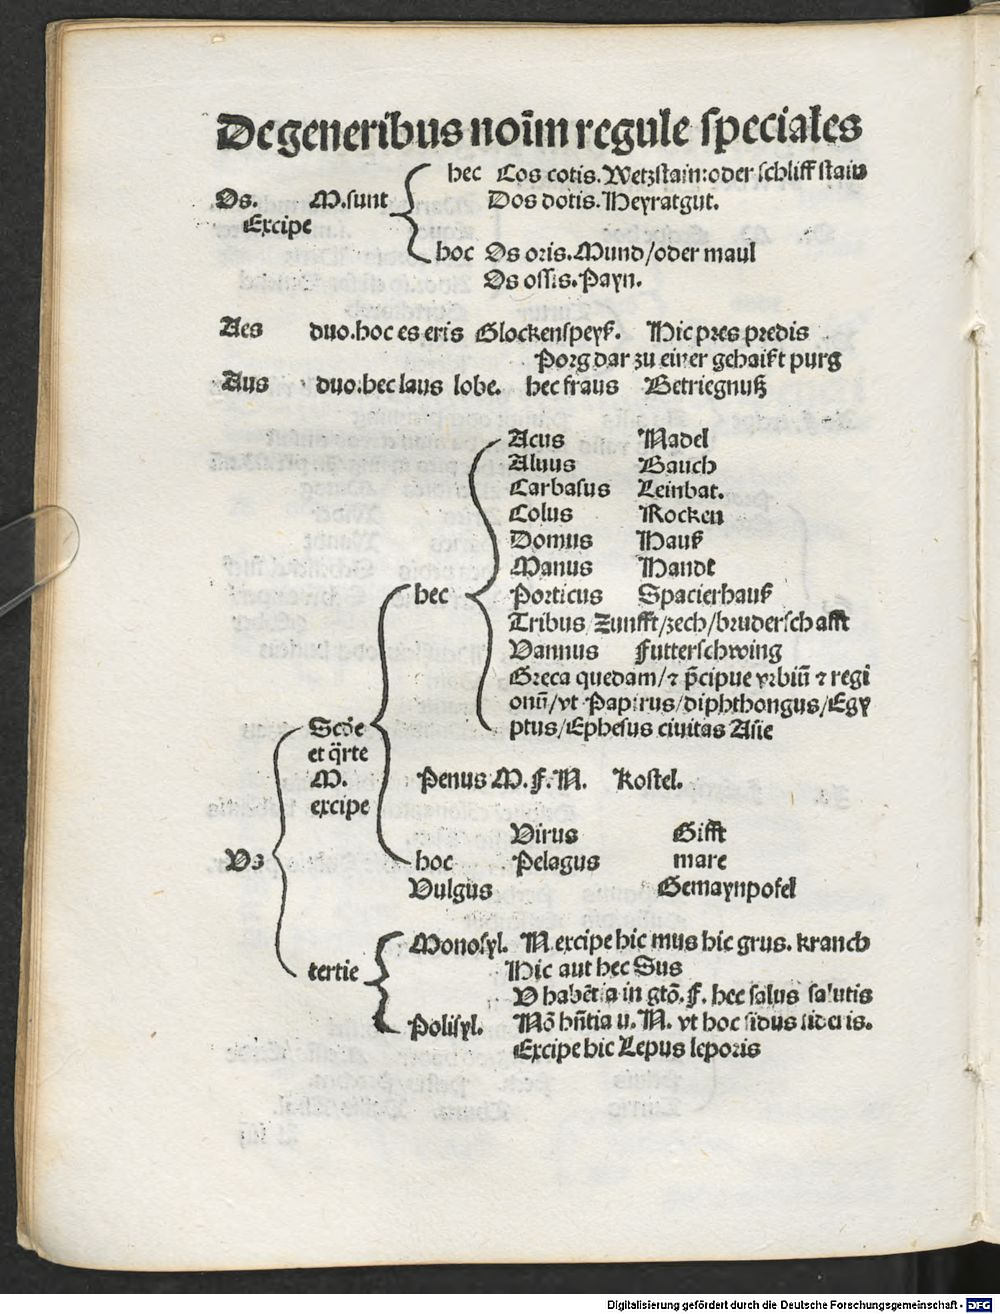 De generibus noīm regule speciales
hec Cos cotis. Wetzstain: oder schliff stain
Os. M. sunt Dos dotis. Heyratgut.
Excipe
hoc Os oris. Mund/oder maul
Os ossis. Payn.
Aes duo. hoc es eris Glockenspeyß. Hic pres predis
Porg dar zu einer gehaißt purg
Aus duo. hec laus lobe. hec fraus Betriegnuß
Acus Nadel
Aluus Bauch
Carbasus Leinbat.
Colus Rocken
Domus Hauß
Manus Handt
hec Porticus Spacierhauß
Tribus Zunfft/zech/bruderschafft
Vannus Futterschwing
Greca quedam/⁊ p̄cipue vrbiū ⁊ regi
onū/vt Papirus/diphthongus/Egy
Scd̄e ptus/Ephesus ciuitas Asie
et q̄rte
M. Penus M. F. N. Kostel.
excipe
Virus Gifft
Vs hoc Pelagus mare
Vulgus Gemaynpofel
Monosyl. N. excipe hic mus hic grus. kranch
tertie Hic aut hec Sus
V habēt a in gtō. F. hec salus salutis
Polisyl. Nō hn̄tia u. N. vt hoc sidus sideris.
Excipe hic Lepus leporis
Digitalisierung gefördert durch die Deutsche Forschungsgemeinschaft - DFG